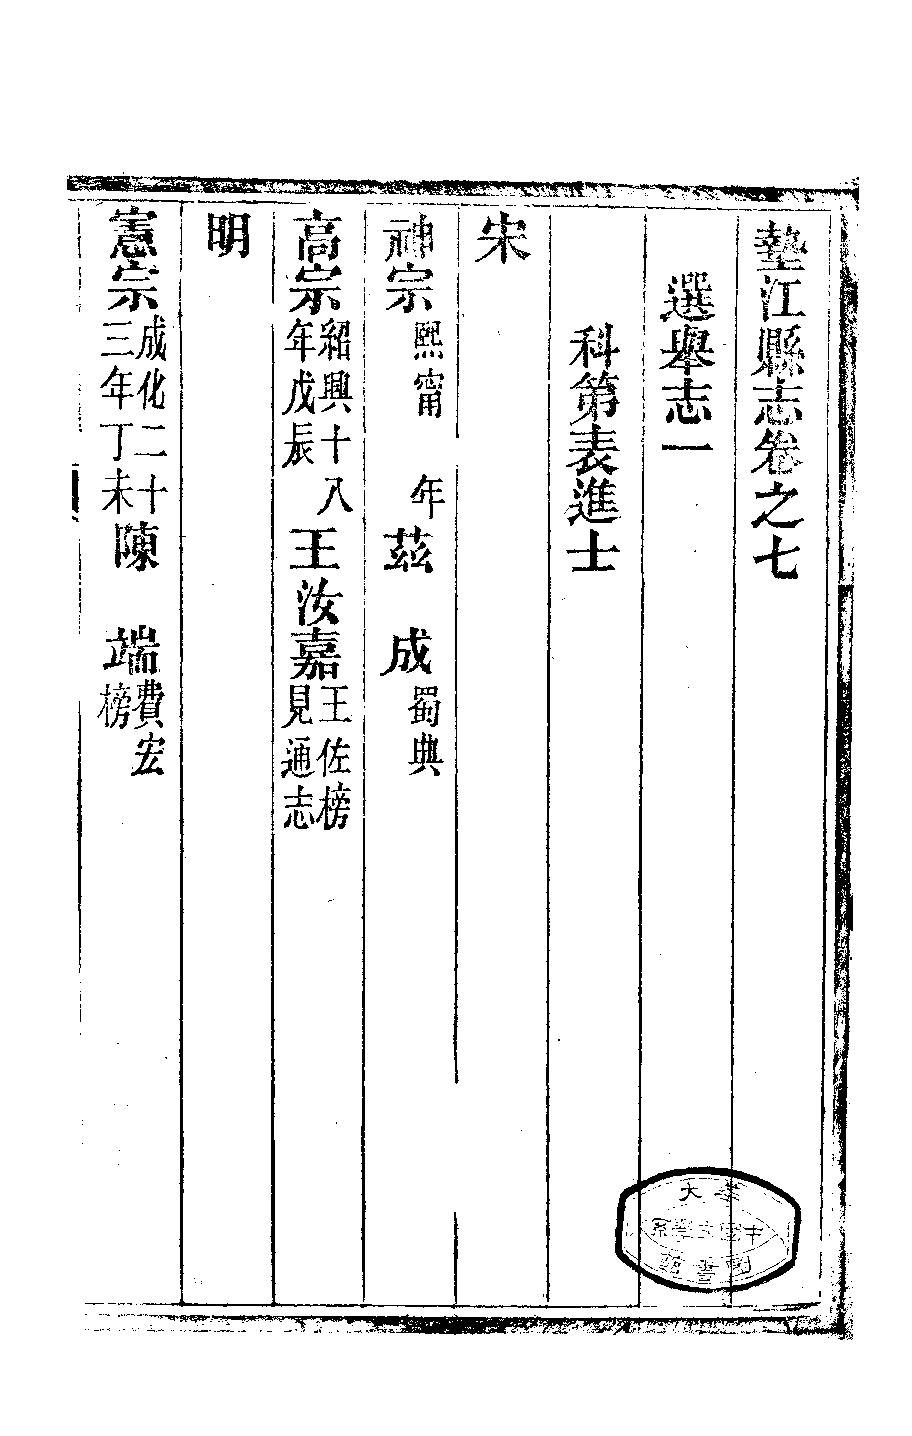 墊江縣志卷之七
選舉志一
科第表進士
宋
神宗熙甯　年茲　成蜀典
高宗紹興十八年戊辰王汝嘉王佐榜見通志
明
憲宗成化二十三年丁未陳　端費宏榜